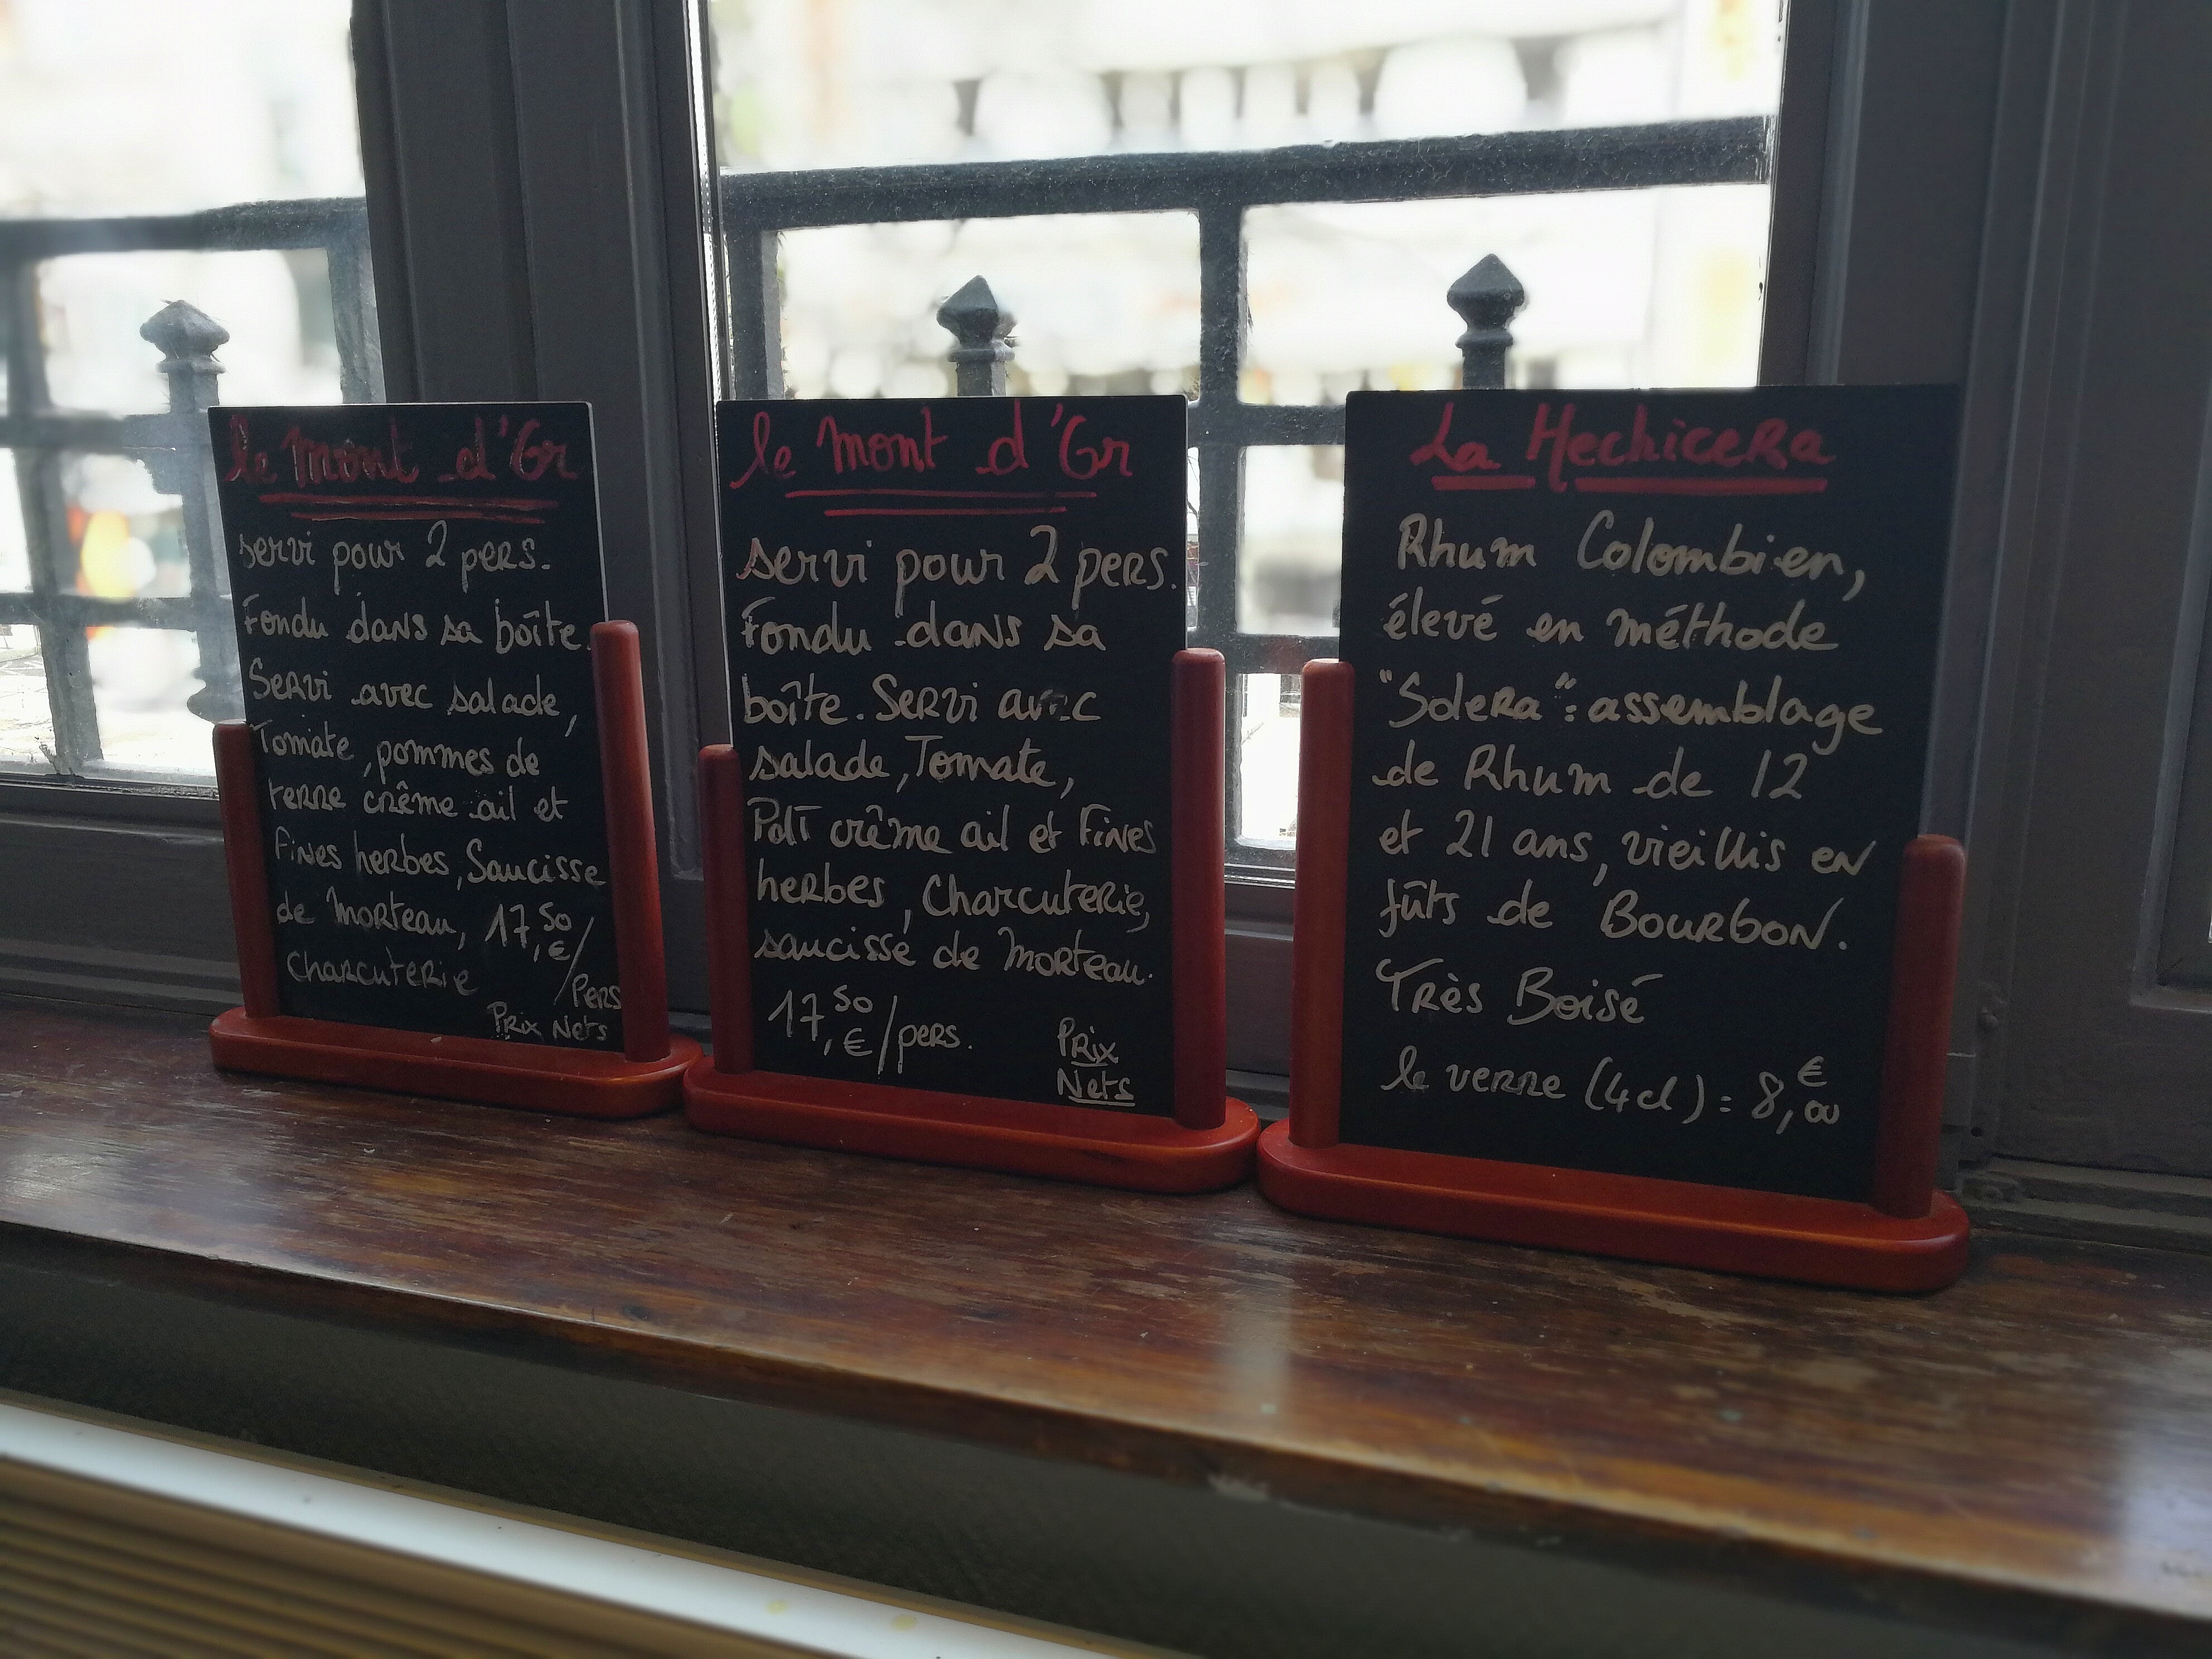 le Mont d'Or
servi pour 2 pers.
Fondu dans sa boîte.
Servi avec salade,
Tomate, pommes de
terre crême ail et
fines herbes, Saucisse
de Morteau, 17,50€/Pers
Charcuterie
Prix Nets
le Mont d'Or
servi pour 2 pers.
Fondu dans sa
boîte. Servi avec
salade, Tomate,
PdT crême ail et fines
herbes, Charcuterie,
saucisse de Morteau.
17,50€/pers.
Prix
Nets
La Hechicera
Rhum Colombien,
élevé en méthode
"Solera": assemblage
de Rhum de 12
et 21 ans, vieillis en
fûts de Bourbon.
Très Boisé
le verre (4cl) = 8,00€